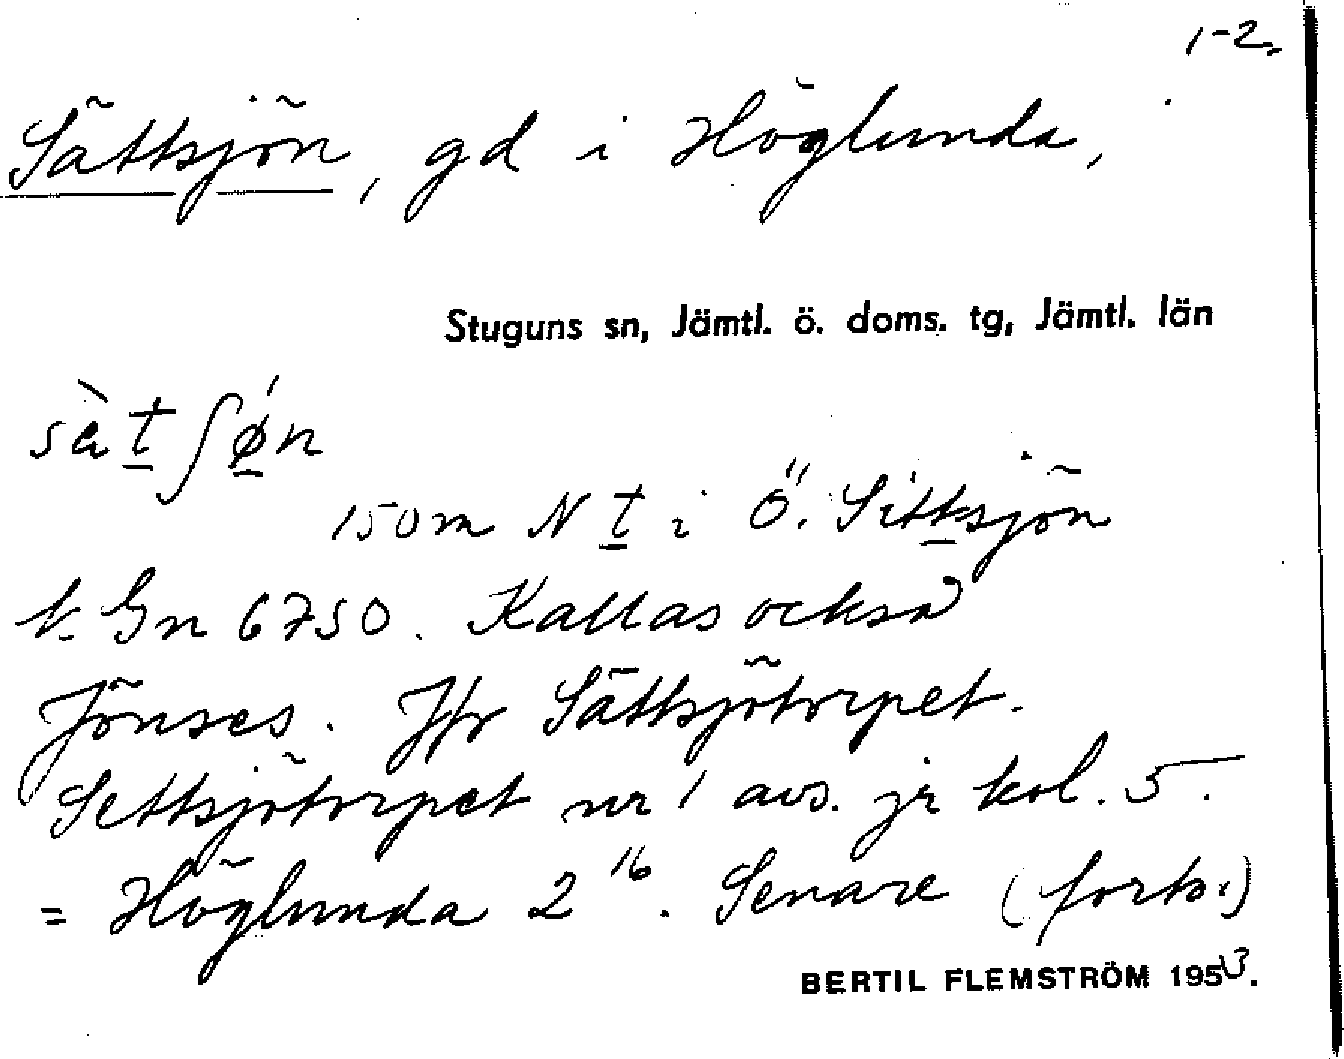 1-2.
Sättsjön, gd i Höglunda,
Stuguns sn, Jämtl. ö. doms. tg, Jämtl. län
sàt̲ʃǿ̲n
150 m N t̲ i Ö. Sittsjön
k. Gn 6750. Kallas också
Jönses. Jfr Sättsjötorpet.
Settsjötorpet nr 1 avs. jr kol. 5.
= Höglunda 2¹⁶. Senare (forts.)
BERTIL FLEMSTRÖM 1953.